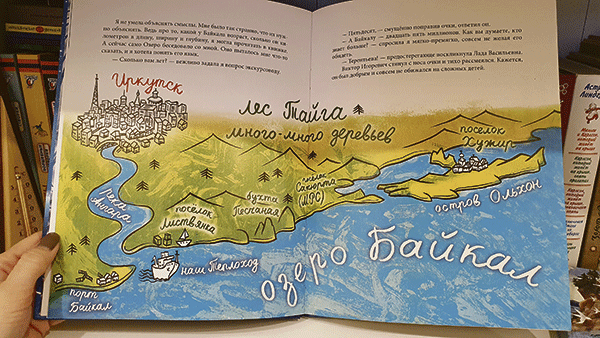 Я не умею объяснять смыслы. Мне было так странно, что их нуж-
но объяснять. Ведь про то, какой у Байкала возраст, сколько он ки-
лометров в длину, ширину и глубину, я могла прочитать в книжке.
А сейчас само Озеро беседовало со мной. Оно пыталось мне что-то
сказать, и я хотела понять его язык.
— Сколько вам лет? — вежливо задала я вопрос экскурсоводу
— Пятьдесят, — смущённо поправив очки, ответил он.
— А Байкалу — двадцать пять миллионов. Как вы думаете, кто
знает больше? — спросила я мягко-премягко, совсем не желая его
обидеть.
— Терентьева! — предостерегающе воскликнула Лада Васильевна.
Виктор Егорович стянул с носа очки и тихо рассмеялся. Кажется,
он был добрым и совсем не обижался на сложных детей.
Иркутск
лес Тайга
много-много деревьев
посёлок
Хужир
остров Ольхон
посёлок
Сахюрта
(МРС)
бухта
Песчаная
посёлок
Листвянка
река
Ангара
наш теплоход
порт
Байкал
озеро Байкал